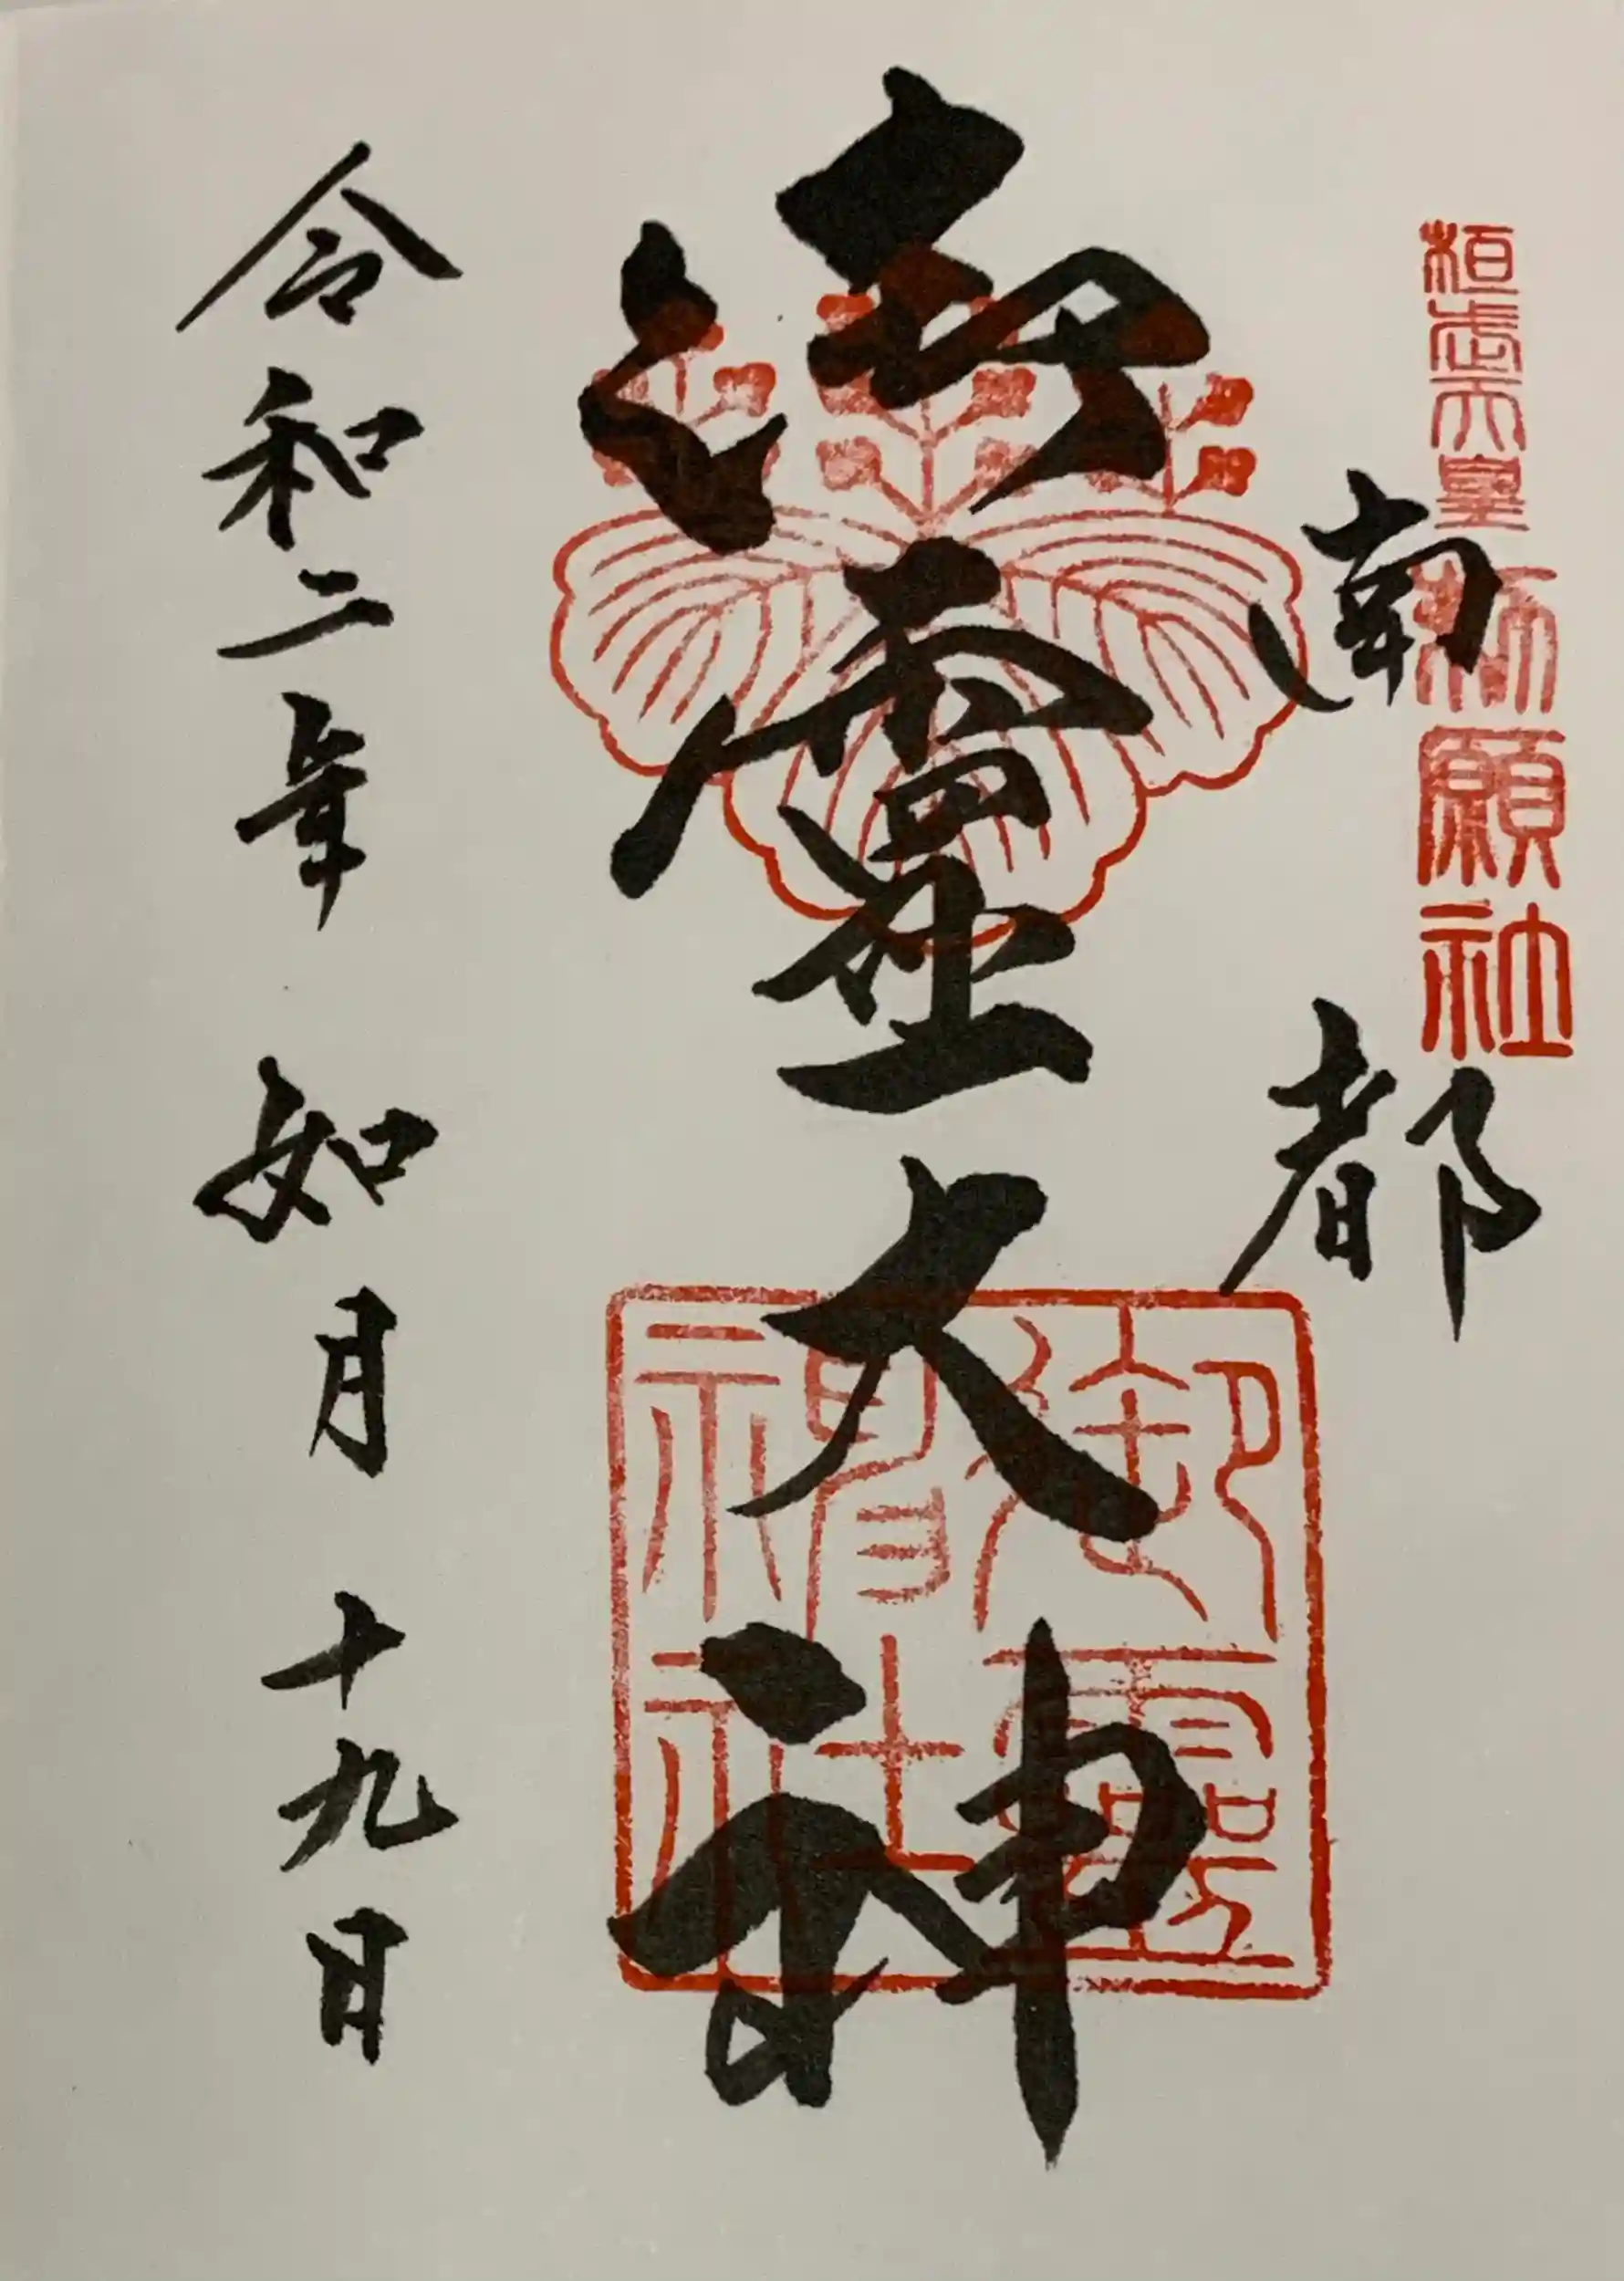 桓武天皇
祈願社
南都
御霊大神
御霊神社
令和二年 如月 十九日